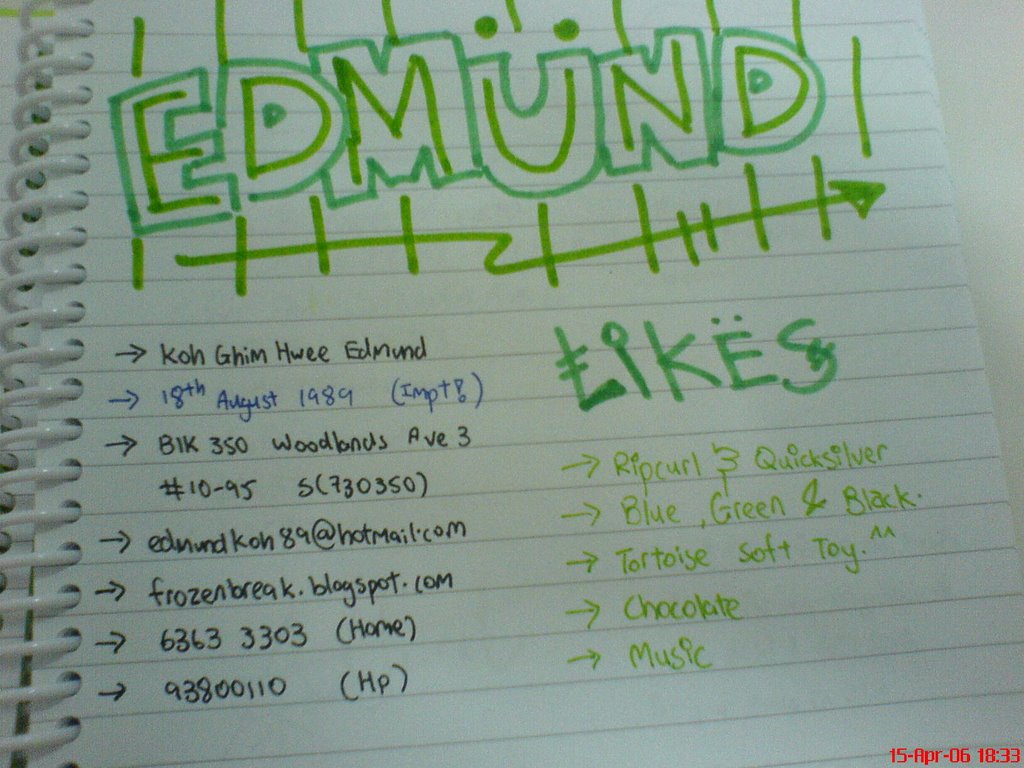 EDMÜND
→ Koh Ghim Hwee Edmund
→ 18th August 1989 (Impt!)
→ Blk 350 Woodlands Ave 3
#10-95 S(730350)
→ edmundkoh89@hotmail.com
→ frozenbreak.blogspot.com
→ 6363 3303 (Home)
→ 93800110 (Hp)
ŁiKËS
→ Ripcurl & Quicksilver
→ Blue, Green & Black.
→ Tortoise Soft Toy. ^^
→ Chocolate
→ Music
15-Apr-06 18:33